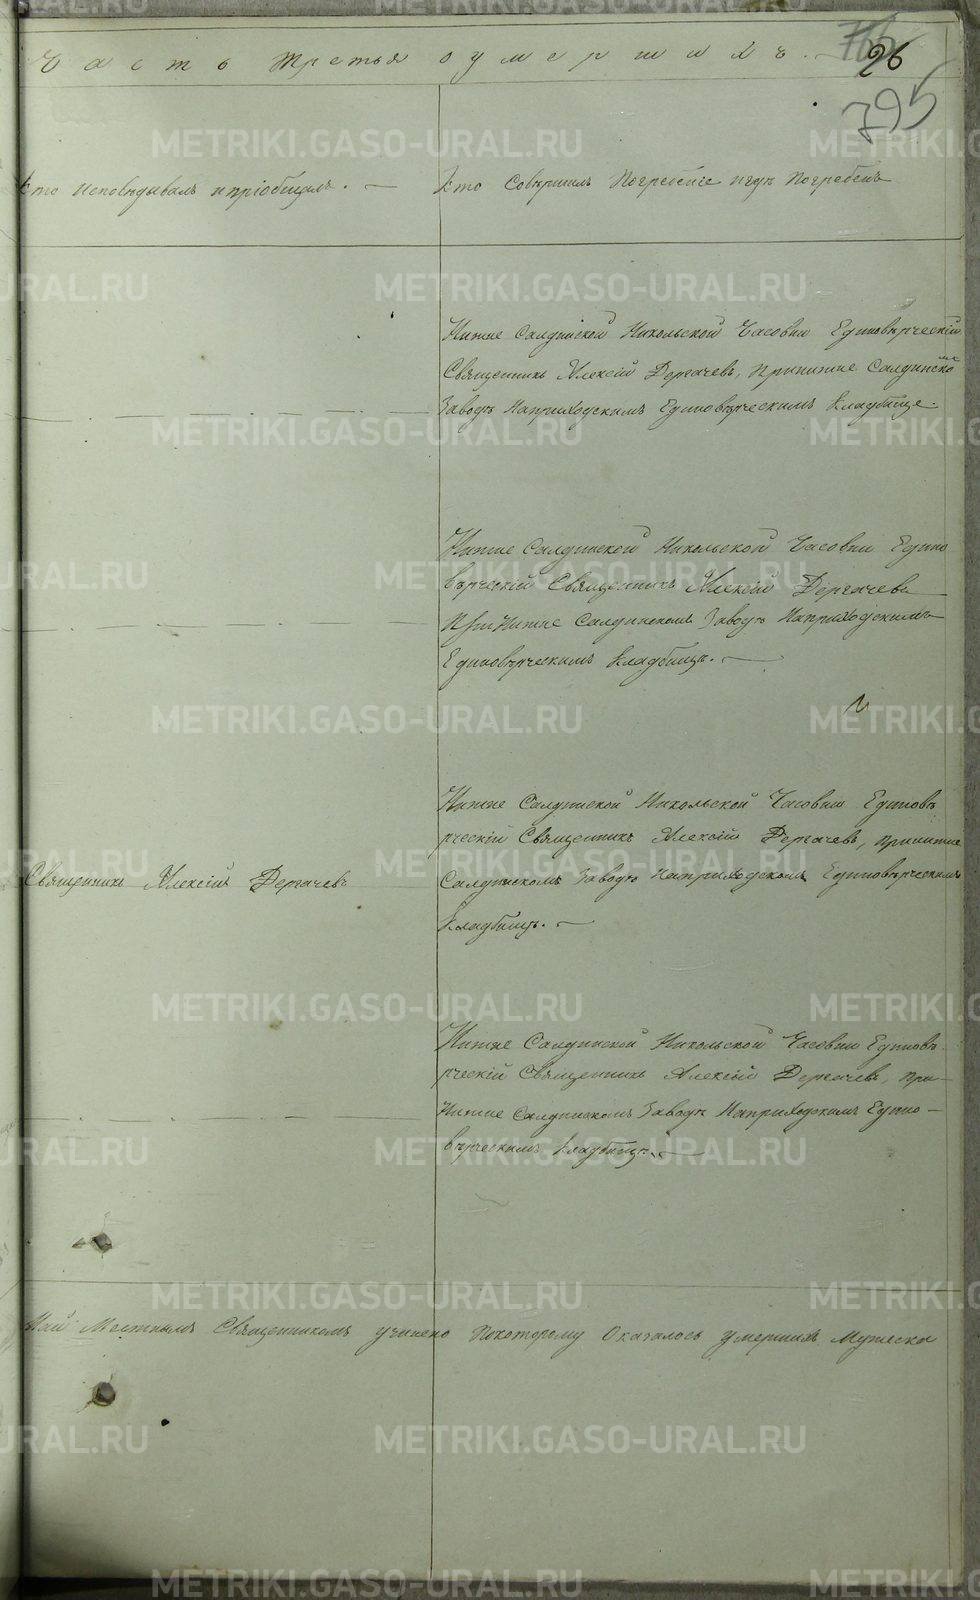 Часть третья о умершихъ.
765
26
795
Кто исповѣдывалъ и пріобщалъ. —
Кто совершилъ погребеніе и гдѣ погребенъ
Нижне Салдинской Никольской Часовни Единовѣрческій
Священникъ Алексій Дергачевъ, принижне Салдинско
мъ
Заводѣ наприходскимъ Единовѣрческимъ кладбище.
Нижне Салдинской Никольской Часовни Едино
вѣрческій Священникъ Алексій Дергачевъ
При Нижне Салдинскомъ Заводѣ наприходскимъ
Единовѣрческимъ кладбищѣ. —
Нижне Салдинской Никольской Часовни Единовѣ
рческій Священникъ Алексій Дергачевъ, принижне
Священникъ Алексій Дергачевъ
Салдинскомъ Заводѣ наприходскомъ Единовѣрческимъ
кладбищѣ. —
Нижне Салдинской Никольской Часовни Единовѣ
рческій Священникъ Алексій Дергачевъ, при-
Нижне Салдинскомъ Заводѣ наприходскимъ Едино-
вѣрческимъ кладбищѣ. —
Мѣстнымъ Священникомъ учинено покоторому оказалось умершихъ мужеска
METRIKI.GASO-URAL.RU